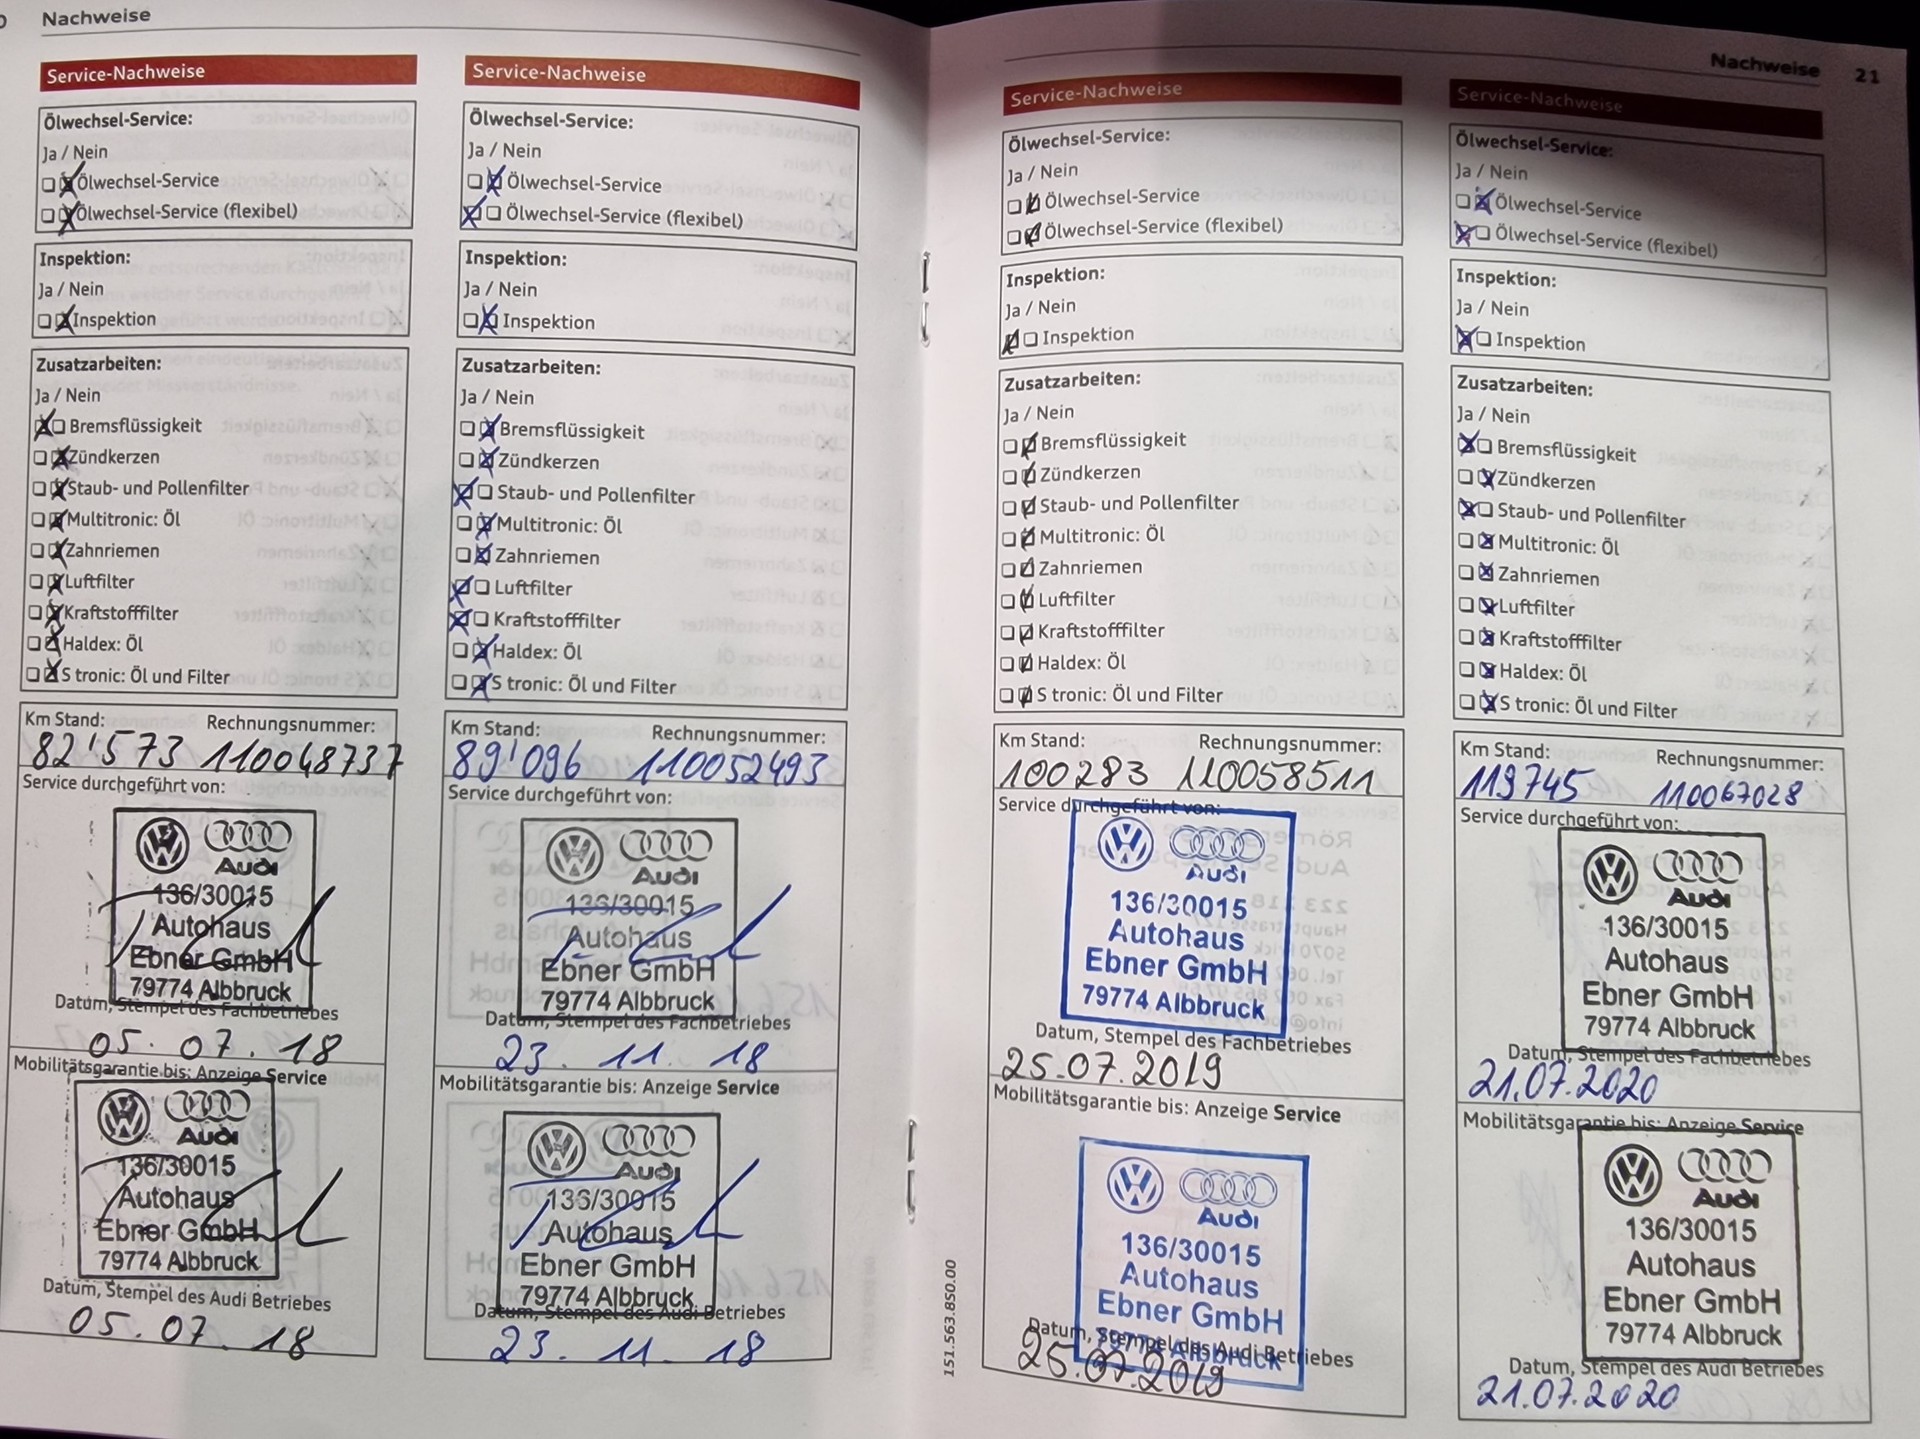 Nachweise
Service-Nachweise
Ölwechsel-Service:
Ja / Nein
Ölwechsel-Service
Ölwechsel-Service (flexibel)
Inspektion:
Ja / Nein
Inspektion
Zusatzarbeiten:
Ja / Nein
Bremsflüssigkeit
Zündkerzen
Staub- und Pollenfilter
Multitronic: Öl
Zahnriemen
Luftfilter
Kraftstofffilter
Haldex: Öl
S tronic: Öl und Filter
Km Stand: Rechnungsnummer:
82'573 110048737
Service durchgeführt von:
Audi
136/30015
Autohaus
Ebner GmbH
79774 Albbruck
Datum, Stempel des Fachbetriebes
05. 07. 18
Mobilitätsgarantie bis: Anzeige Service
Audi
136/30015
Autohaus
Ebner GmbH
79774 Albbruck
Datum, Stempel des Audi Betriebes
05. 07. 18
Service-Nachweise
Ölwechsel-Service:
Ja / Nein
Ölwechsel-Service
Ölwechsel-Service (flexibel)
Inspektion:
Ja / Nein
Inspektion
Zusatzarbeiten:
Ja / Nein
Bremsflüssigkeit
Zündkerzen
Staub- und Pollenfilter
Multitronic: Öl
Zahnriemen
Luftfilter
Kraftstofffilter
Haldex: Öl
S tronic: Öl und Filter
Km Stand: Rechnungsnummer:
89'096 110052493
Service durchgeführt von:
Audi
136/30015
Autohaus
Ebner GmbH
79774 Albbruck
Datum, Stempel des Fachbetriebes
23. 11. 18
Mobilitätsgarantie bis: Anzeige Service
Audi
136/30015
Autohaus
Ebner GmbH
79774 Albbruck
Datum, Stempel des Audi Betriebes
23. 11. 18
Nachweise 21
Service-Nachweise
Ölwechsel-Service:
Ja / Nein
Ölwechsel-Service
Ölwechsel-Service (flexibel)
Inspektion:
Ja / Nein
Inspektion
Zusatzarbeiten:
Ja / Nein
Bremsflüssigkeit
Zündkerzen
Staub- und Pollenfilter
Multitronic: Öl
Zahnriemen
Luftfilter
Kraftstofffilter
Haldex: Öl
S tronic: Öl und Filter
Km Stand: Rechnungsnummer:
100283 110058511
Service durchgeführt von:
Audi
136/30015
Autohaus
Ebner GmbH
79774 Albbruck
Datum, Stempel des Fachbetriebes
25.07.2019
Mobilitätsgarantie bis: Anzeige Service
Audi
136/30015
Autohaus
Ebner GmbH
79774 Albbruck
Datum, Stempel des Audi Betriebes
25.07.2019
151.563.850.00
Service-Nachweise
Ölwechsel-Service:
Ja / Nein
Ölwechsel-Service
Ölwechsel-Service (flexibel)
Inspektion:
Ja / Nein
Inspektion
Zusatzarbeiten:
Ja / Nein
Bremsflüssigkeit
Zündkerzen
Staub- und Pollenfilter
Multitronic: Öl
Zahnriemen
Luftfilter
Kraftstofffilter
Haldex: Öl
S tronic: Öl und Filter
Km Stand: Rechnungsnummer:
119745 110067028
Service durchgeführt von:
Audi
136/30015
Autohaus
Ebner GmbH
79774 Albbruck
Datum, Stempel des Fachbetriebes
21.07.2020
Mobilitätsgarantie bis: Anzeige Service
Audi
136/30015
Autohaus
Ebner GmbH
79774 Albbruck
Datum, Stempel des Audi Betriebes
21.07.2020